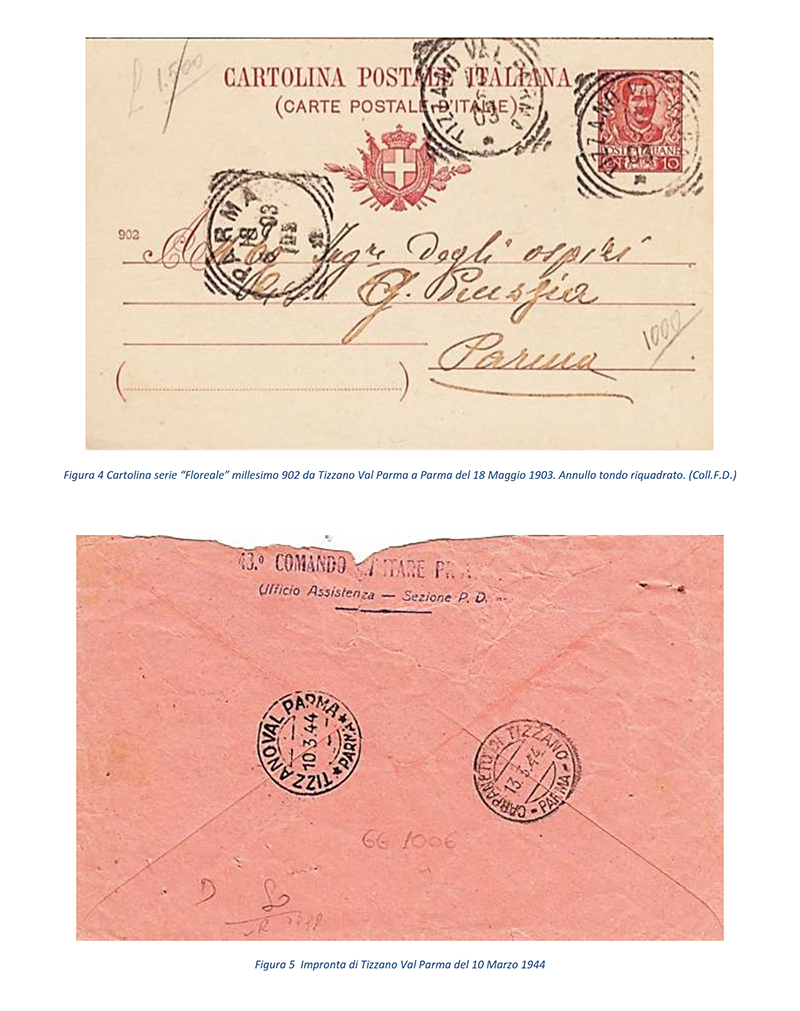 £ 1.500
CARTOLINA POSTALE ITALIANA
(CARTE POSTALE D'ITALIE)
TIZZANO VAL PARMA
03
TIZZANO VAL PARMA
POSTE ITALIANE
10
PARMA
18 03
902
Ingre Degli ospizi
G.
Parma
1000
Figura 4 Cartolina serie “Floreale” millesimo 902 da Tizzano Val Parma a Parma del 18 Maggio 1903. Annullo tondo riquadrato. (Coll.F.D.)
43.º COMANDO MILITARE
Ufficio Assistenza — Sezione P. D.
TIZZANO VAL PARMA * PARMA *
10.3.44
CARPANETO DI TIZZANO - PARMA -
13.3.44
GG 1006
D
Figura 5 Impronta di Tizzano Val Parma del 10 Marzo 1944